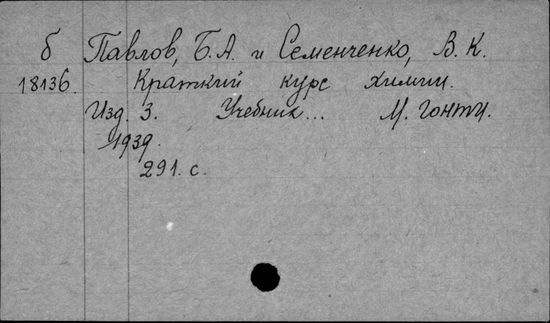 б Павлов, Б.А. и Семенченко, В.К.
18136. Краткий курс химии.
Изд. 3. Учебник... М. Гонти.
1939.
291. с.